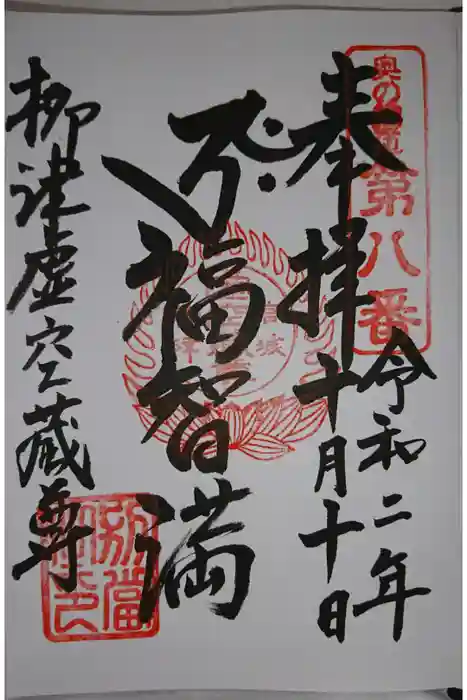 奥の細道
第八番
奉拝
令和二年
十月十日
福智満
柳津虚空蔵尊
別當